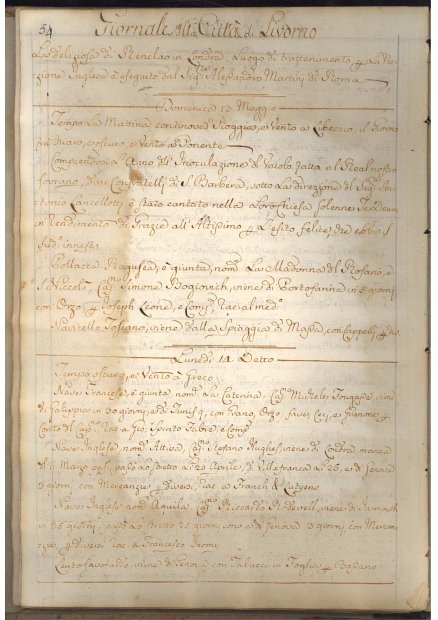 54 Giornale della Città di Livorno
La deliziosa di Renelao in Londra, Luogo di trattenimento p la Na=
zione Inglese è eseguito dal Sig.r Alessandro Martini di Roma
Domenica 13. Maggio
Tempo alla Mattina continova Pioggia, e Vento a Libeccio, il Giorno
va chiaro, e oscuro, e Vento a Ponente
Compiendosi l'Anno dell'Inoculazione di Vaiolo fatta al Real nostro
Sovrano, dai Confratelli di S. Barbera, sotto la direzione di Sig.r An=
tonio Lancellotti è stato cantato nella Loro Chiesa solenne Te Deum
in rendimento di Grazie all'Altissimo p l'esito felice, che ebbe il
sud.o innesto
Pollacca Ragusea, è giunta, nom.a La Madonna del Rosario, e
S. Niccolò Cap.o Simone Bogiovich, viene di Portofarina in 5 giorni
con Orzo p Joseph Leone, e Comp.i rac. al med.o
Navicello Toscano, viene dalla Spiaggia di Massa, con Cappelli
Lunedì 14 Detto
Tempo oscuro, e Vento a Greco
Nave Francese, è giunta nom.a La Caterina, Cap.o Michele viene
di Galippio in 30 giorni, e di Tunis 9, con Grano, Orzo, Fave, Ceci, e p
Conto di Cap.o rac. a Gio: Spirito Fabre, e Comp.i
Nave Inglese nom.a Attiva, Cap.o Stefano Hughes, viene di Londra manca
dì 11 Marzo pas.o passò lo stretto a' 20 Aprile, di Villafranca a' 26, e di Genova
3 giorni con Mercanzie p diversi, rac. a Franch & Lutyens
Nave Inglese nom.a Aquila, Cap.o Riccardo Ridwell, viene di Jarmouth
in 35 giorni, passò lo stretto 25 giorni sono e di Genova 3 giorni, con Mercan=
zie p diversi rac. a Francesco Jermy
Leuto Savojardo viene di Genova con Tabacco in Foglia p Bassano